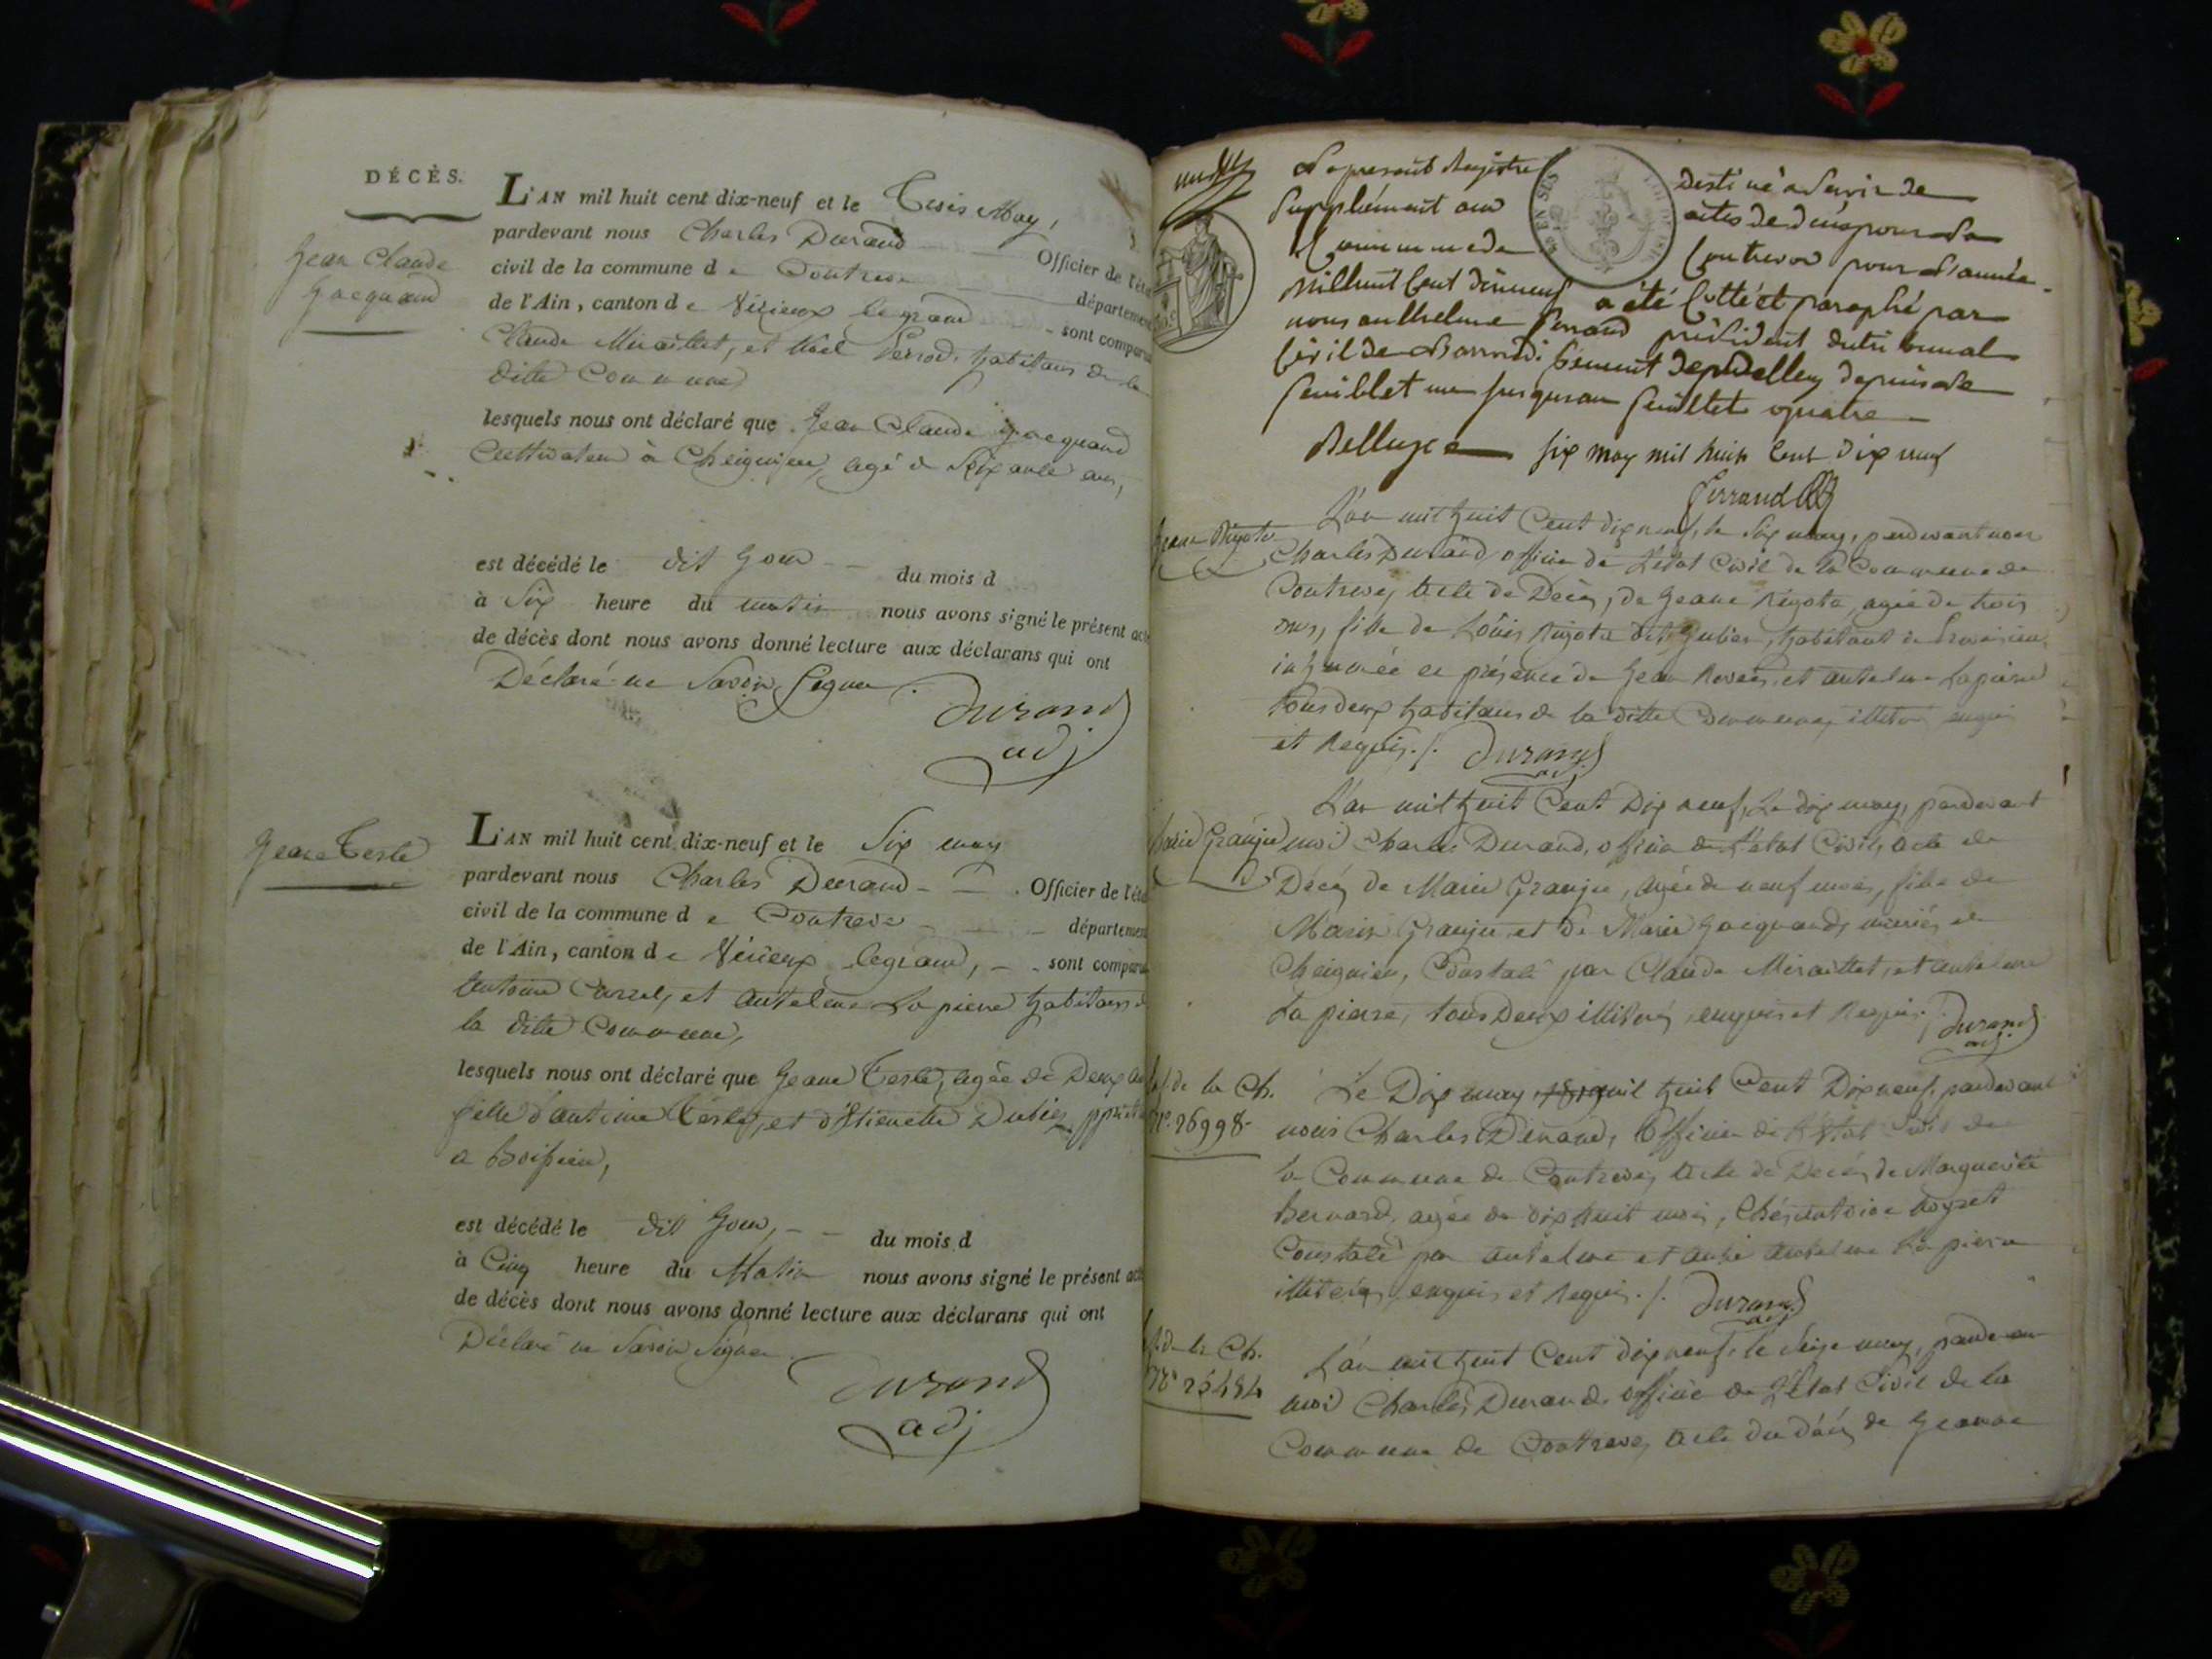 DÉCÈS.
Jean Claude
Jacquand
L'AN mil huit cent dix-neuf et le Trois May,
pardevant nous Charles Durand Officier de l'éta
civil de la commune de Contrevoz département
de l'Ain, canton de Virieux le grand sont compar
Claude Miraillet, et Noel Perrod, habitans de la
ditte Commune
lesquels nous ont déclaré que Jean Claude Jacquand
Cultivateur à Cheignieu, agé de Soixante ans,
est décédé le dit Jour du mois d
à Six heure du matin nous avons signé le présent acte
de décès dont nous avons donné lecture aux déclarans qui ont
Déclaré ne Savoir Signer.
Durand
adj
Jeane Terle
L'AN mil huit cent dix-neuf et le Six may
pardevant nous Charles Durand Officier de l'éta
civil de la commune de Contrevoz département
de l'Ain, canton de Virieux legrand, sont compar
Antoine Carrel, et Antelme Lapierre habitans
la ditte Commune,
lesquels nous ont déclaré que Jeane Terle, agée de Deux an
fille d'antoine Terle, et d'Etienette Dubiez
a Boissieu,
est décédé le dit Jour, du mois d
à Cinq heure du Matin nous avons signé le présent act
de décès dont nous avons donné lecture aux déclarans qui ont
Déclaré ne Savoir Signer
Durand
adj
Le present Registre destiné a Servir de
Supplément aux actes de décès pour la
Commune de Contrevoz pour l'année
mil huit Cent dix neuf a été Cotté et paraphé par
nous anthelme ferrand président du tribunal
Civil de L'arrondissement de Belley depuis le
feuillet un jusquau feuillet quatre
Belley le six may mil huit Cent dix neuf
ferrand
Jeane Rigote
L'an mil huit Cent dix neuf, le Six may, pardevant nous
Charles Durand, officier de L'état Civil de la Commune de
Contrevoz, acte de Décès, de Jeane Rigote, agée de trois
ans, fille de Loüis Rigote dit Jubier, habitant de
inhumée en présence de Jean et antelme Lapierre
tous deux habitans de la ditte Commune, illitérés enquis
et Requis./. Durand
adj.
Marie Granjeu
L'an mil huit Cent Dix neuf, Le dix may, pardevant
moi Charles Durand, officier de L'état Civil, acte de
Décès de Marie Granjeu, agée de neuf mois, fille de
Marin Granjeu et de Marie Jacquand, mariés de
Cheignieu, Constaté par Claude Miraillet, et antelme
La pierre, tous Deux illitérés, enquis et Requis./. Durand
adj.
de la Ch.
N.° 26998.
Le Dix may mil huit Cent Dix neuf, pardevant
nous Charles Durand, Officier de L'état Civil de
la Commune de Contrevoz, acte de Décès, de Marguerite
Bernard, agée de dix huit mois,
Constaté par antelme et autre antelme La pierre
illitérés, enquis et Requis./. Durand
adj
de la Ch.
N.° 25484
L'an mil huit Cent dix neuf, le Seize may, pardevant
moi Charles Durand, officier de L'état Civil de la
Commune de Contrevoz, acte du décès de Jeanne